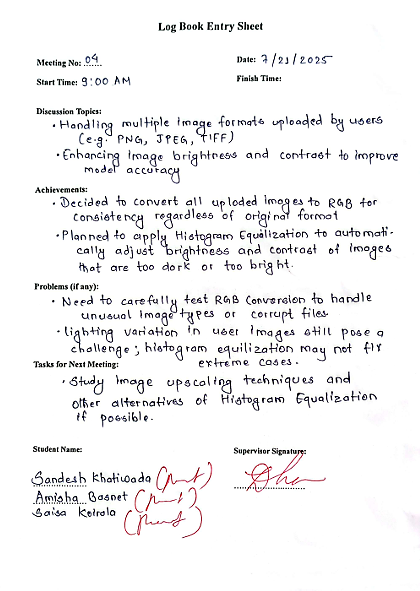 Log Book Entry Sheet
Meeting No: 04
Date: 7/21/2025
Start Time: 9:00 AM
Finish Time:
Discussion Topics:
• Handling multiple image formats uploaded by users
(e.g. PNG, JPEG, TIFF)
• Enhancing image brightness and contrast to improve
model accuracy
Achievements:
• Decided to convert all uploded images to RGB for
consistency regardless of original format
• Planned to apply Histogram Equilization to automati-
cally adjust brightness and contrast of images
that are too dark or too bright.
Problems (if any):
• Need to carefully test RGB Conversion to handle
unusual image types or corrupt files.
• lighting variation in user images still pose a
challenge; histogram equilization may not fix
extreme cases.
Tasks for Next Meeting:
• Study image upscaling techniques and
other alternatives of Histogram Equalization
if possible.
Student Name:
Supervisor Signature:
Sandesh Khatiwada
Amisha Basnet
Saisa Koirala